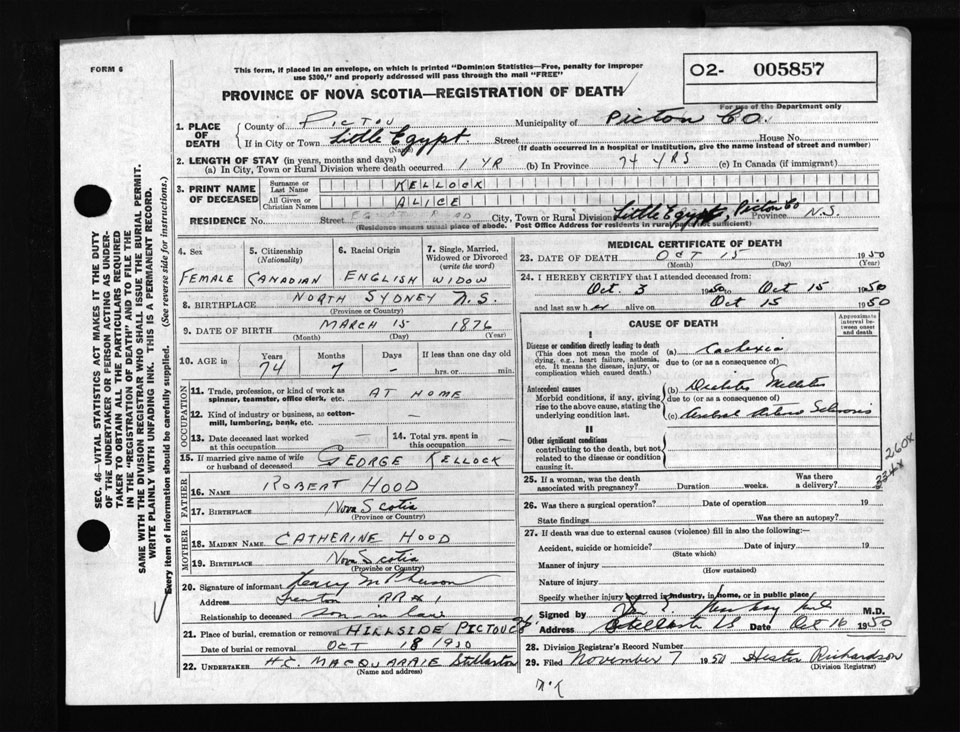 FORM 6
This form, if placed in an envelope, on which is printed "Dominion Statistics—Free, penalty for improper
use $300," and properly addressed will pass through the mail "FREE"
02- 005857
For use of the Department only
PROVINCE OF NOVA SCOTIA—REGISTRATION OF DEATH
1. PLACE OF DEATH
County of PICTOU Municipality of Pictou Co.
If in City or Town Little Egypt. Street House No.
(Name) (If death occurred in a hospital or institution, give the name instead of street and number)
2. LENGTH OF STAY (in years, months and days)
(a) In City, Town or Rural Division where death occurred 1 YR (b) In Province 74 YRS (c) In Canada (if immigrant)
3. PRINT NAME OF DECEASED
Surname or Last Name KELLOCK
All Given or Christian Names ALICE
RESIDENCE No. Street City, Town or Rural Division Little Egypt, Pictou Co Province N.S.
(Residence means usual place of abode. Post Office Address for residents in rural parts not sufficient)
SEC. 46—VITAL STATISTICS ACT MAKES IT THE DUTY
OF THE UNDERTAKER OR PERSON ACTING AS UNDER-
TAKER TO OBTAIN ALL THE PARTICULARS REQUIRED
IN THE "REGISTRATION OF DEATH" AND TO FILE THE
SAME WITH THE DIVISION REGISTRAR WHO SHALL ISSUE THE BURIAL PERMIT.
WRITE PLAINLY WITH UNFADING INK. THIS IS A PERMANENT RECORD.
Every item of information should be carefully supplied. (See reverse side for instructions.)
4. Sex
FEMALE
5. Citizenship
(Nationality)
CANADIAN
6. Racial Origin
ENGLISH
7. Single, Married,
Widowed or Divorced
(write the word)
WIDOW
8. BIRTHPLACE NORTH SYDNEY N.S.
(Province or Country)
9. DATE OF BIRTH MARCH 15 1876
(Month) (Day) (Year)
10. AGE in
Years Months Days If less than one day old
74 7 - hrs. or min.
OCCUPATION
11. Trade, profession, or kind of work as
spinner, teamster, office clerk, etc. AT HOME
12. Kind of industry or business, as cotton-
mill, lumbering, bank, etc. —
13. Date deceased last worked
at this occupation —
14. Total yrs. spent in
this occupation —
15. If married give name of wife
or husband of deceased GEORGE KELLOCK
FATHER
16. NAME ROBERT HOOD
17. BIRTHPLACE Nova Scotia
(Province or Country)
MOTHER
18. MAIDEN NAME CATHERINE HOOD
19. BIRTHPLACE Nova Scotia
(Province or Country)
20. Signature of informant Henry McPherson
Address Trenton RR#1
Relationship to deceased son in law
21. Place of burial, cremation or removal HILLSIDE PICTOU Co
Date of burial or removal OCT 18 1950
22. UNDERTAKER H.C. MACQUARRIE Stellarton
(Name and address)
MEDICAL CERTIFICATE OF DEATH
23. DATE OF DEATH OCT 15 1950
(Month) (Day) (Year)
24. I HEREBY CERTIFY that I attended deceased from:
Oct. 3 1950 to Oct 15 1950
and last saw her alive on Oct 15 1950
CAUSE OF DEATH
Approximate
interval be-
tween onset
and death
I
Disease or condition directly leading to death
(This does not mean the mode of
dying, e.g., heart failure, asthenia,
etc. It means the disease, injury, or
complication which caused death.)
(a) Cachexia
due to (or as a consequence of)
Antecedent causes
Morbid conditions, if any, giving
rise to the above cause, stating the
underlying condition last.
(b) Diabetes Mellitus
due to (or as a consequence of)
(c)
II
Other significant conditions
contributing to the death, but not
related to the disease or condition
causing it.
260X
334X
25. If a woman, was the death
associated with pregnancy? Duration weeks. Was there
a delivery?
26. Was there a surgical operation? Date of operation 19
State findings Was there an autopsy?
27. If death was due to external causes (violence) fill in also the following:—
Accident, suicide or homicide? Date of injury 19
(State which)
Manner of injury
(How sustained)
Nature of injury
Specify whether injury occurred in industry, in home, or in public place
Signed by M.D.
Address Stellarton NS Date Oct 16 1950
28. Division Registrar's Record Number
29. Filed November 7 1950 Hester Richardson
(Division Registrar)